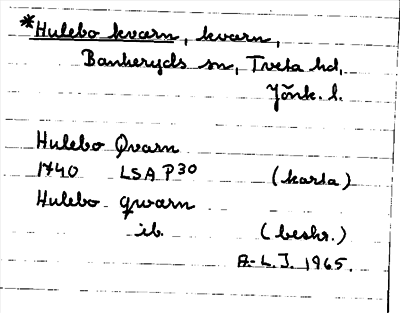 *Hulebo kvarn, kvarn,
Bankeryds sn, Tveta hd,
Jönk. l.
Hulebo Qvarn
1740 LSA P30 (karta)
Hulebo qwarn
ib. (beskr.)
A.-L.J. 1965.